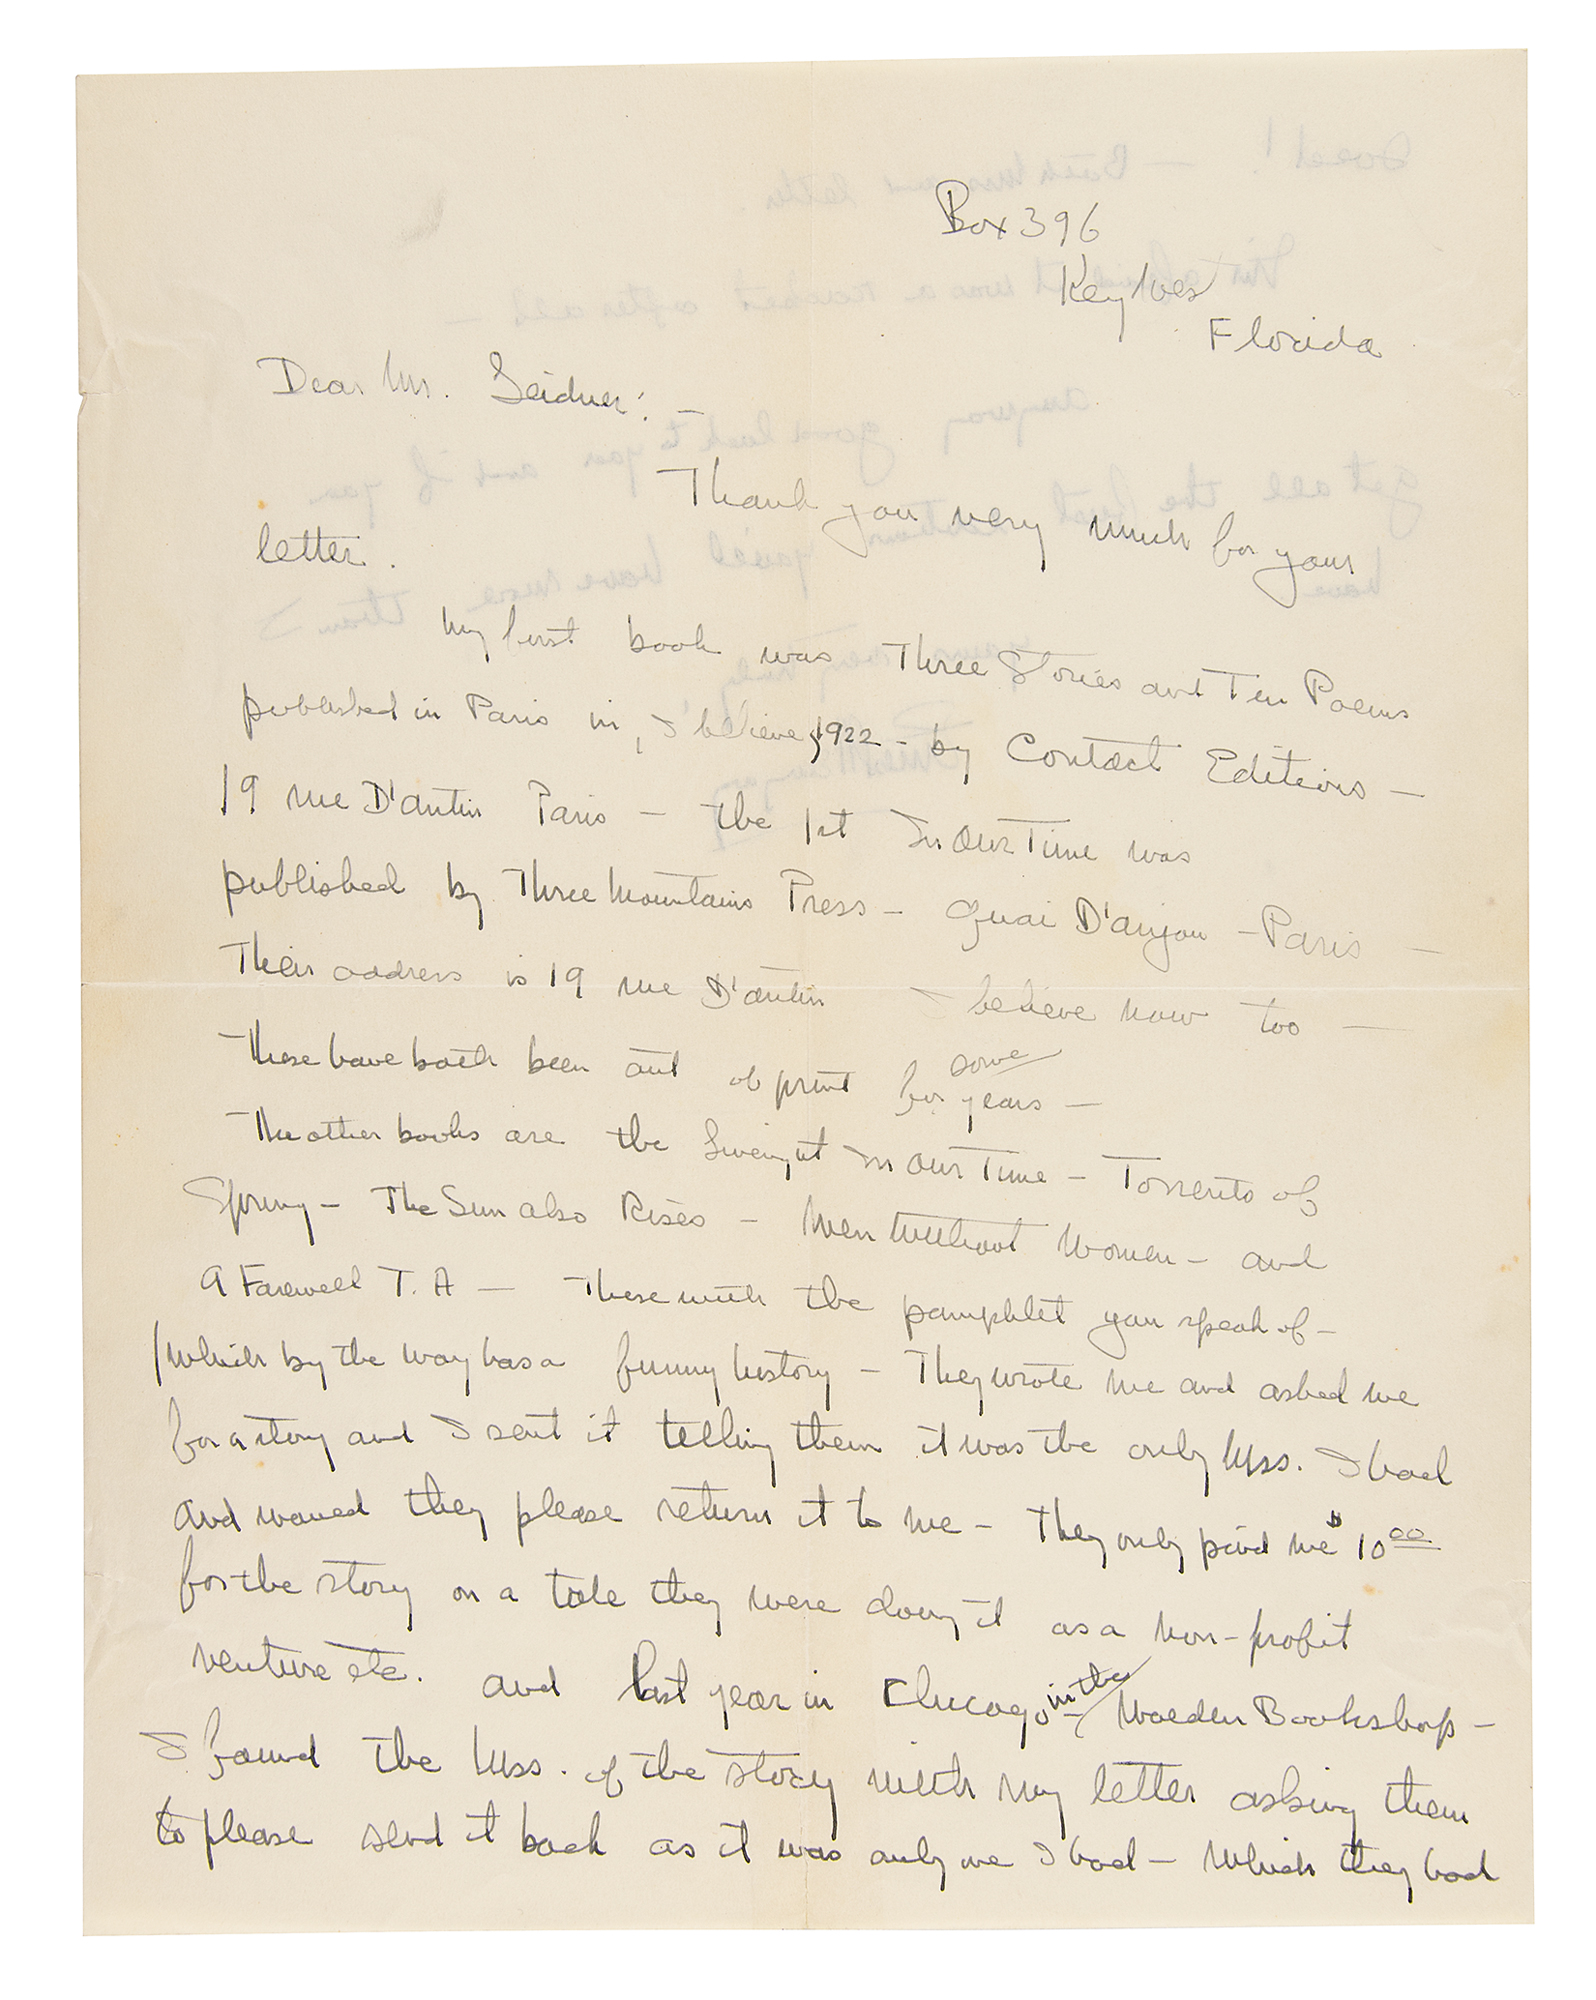 Box 396
Key West
Florida
Dear Mr. Leidner: —
Thank you very much for your
letter.
My first book was Three Stories and Ten Poems
published in Paris in, I believe, 1922 — by Contact Editions —
19 rue D'antin Paris — the 1st In Our Time was
published by Three Mountains Press — Quai D'anjou — Paris —
Their address is 19 rue D'antin I believe now too —
These have both been out of print for some years —
The other books are the Liveright In Our Time — Torrents of
Spring — The Sun also Rises — Men Without Women — and
A Farewell T. A — These with the pamphlet you speak of —
(which by the way has a funny history — They wrote me and asked me
for a story and I sent it telling them it was the only Mss. I had
and would they please return it to me — They only paid me $10 00
for the story on a tale they were doing it as a non-profit
venture etc. and last year in Chicago in the Walden Bookshop —
I found the Mss. of the story with my letter asking them
to please send it back as it was only one I had — Which they had